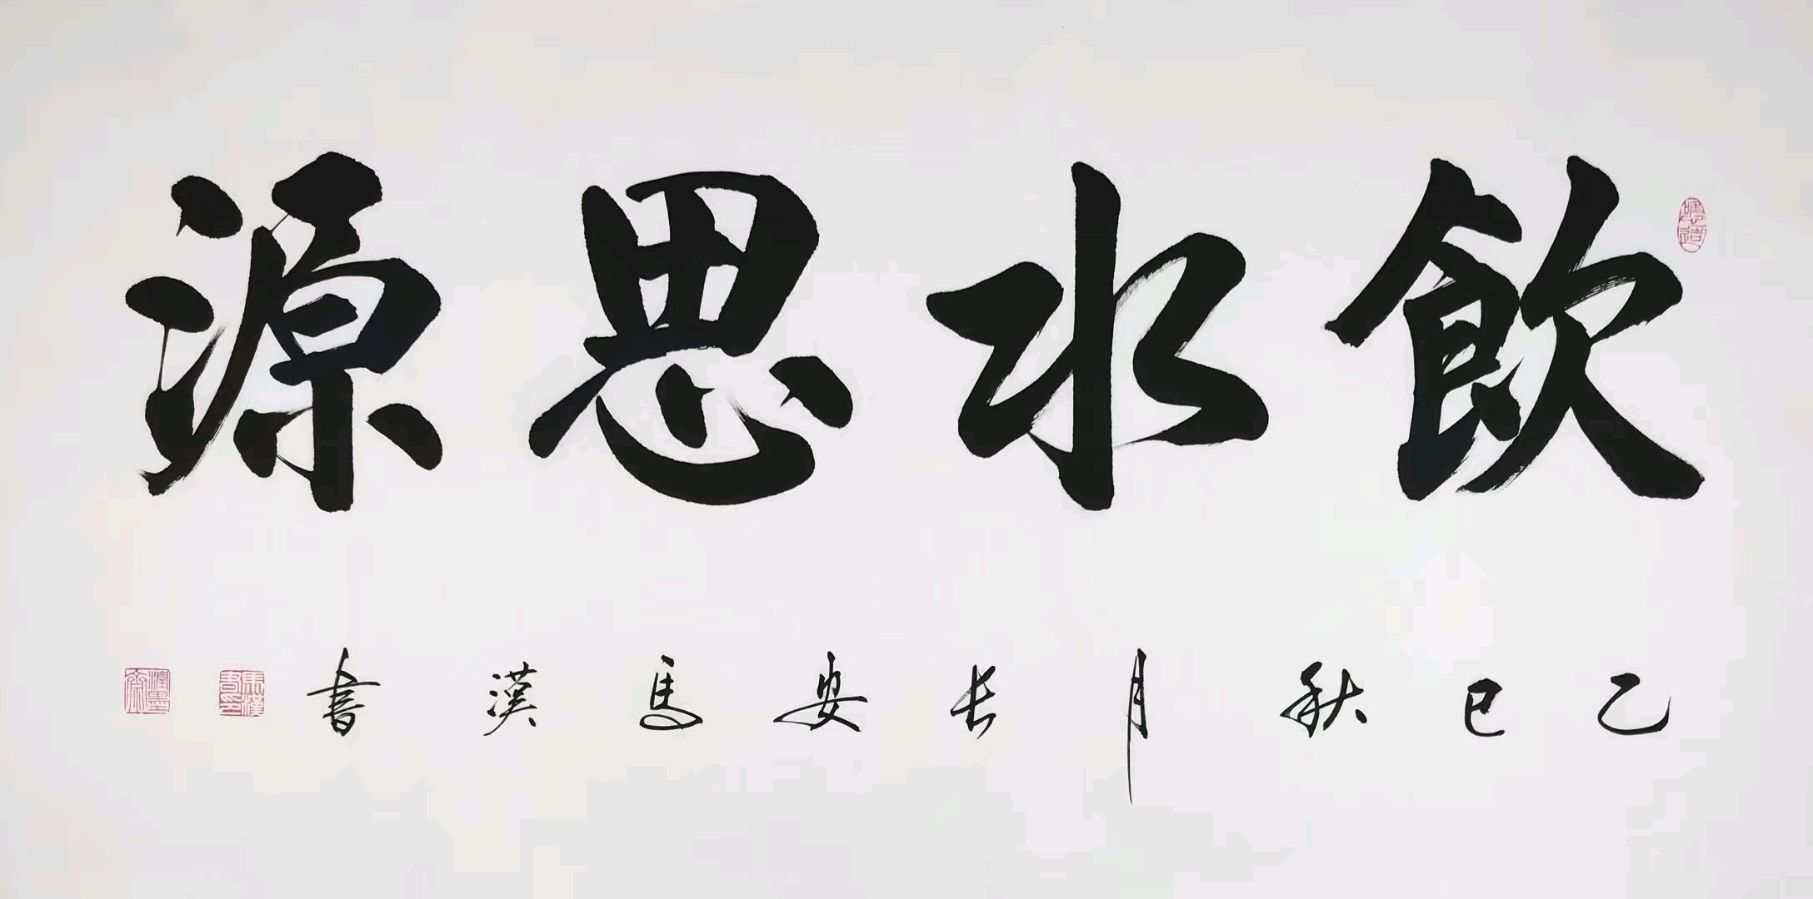 飲水思源
乙巳秋月長安馬漢書